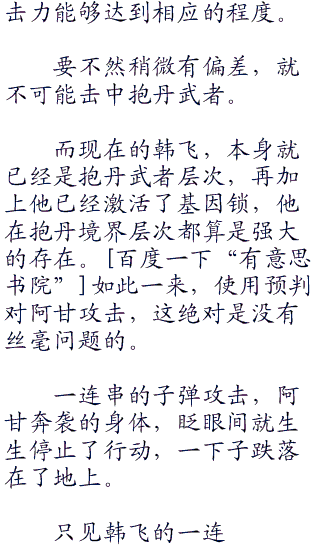 击力能够达到相应的程度。
要不然稍微有偏差，就
不可能击中抱丹武者。
而现在的韩飞，本身就
已经是抱丹武者层次，再加
上他已经激活了基因锁，他
在抱丹境界层次都算是强大
的存在。[百度一下“有意思
书院”]如此一来，使用预判
对阿甘攻击，这绝对是没有
丝毫问题的。
一连串的子弹攻击，阿
甘奔袭的身体，眨眼间就生
生停止了行动，一下子跌落
在了地上。
只见韩飞的一连